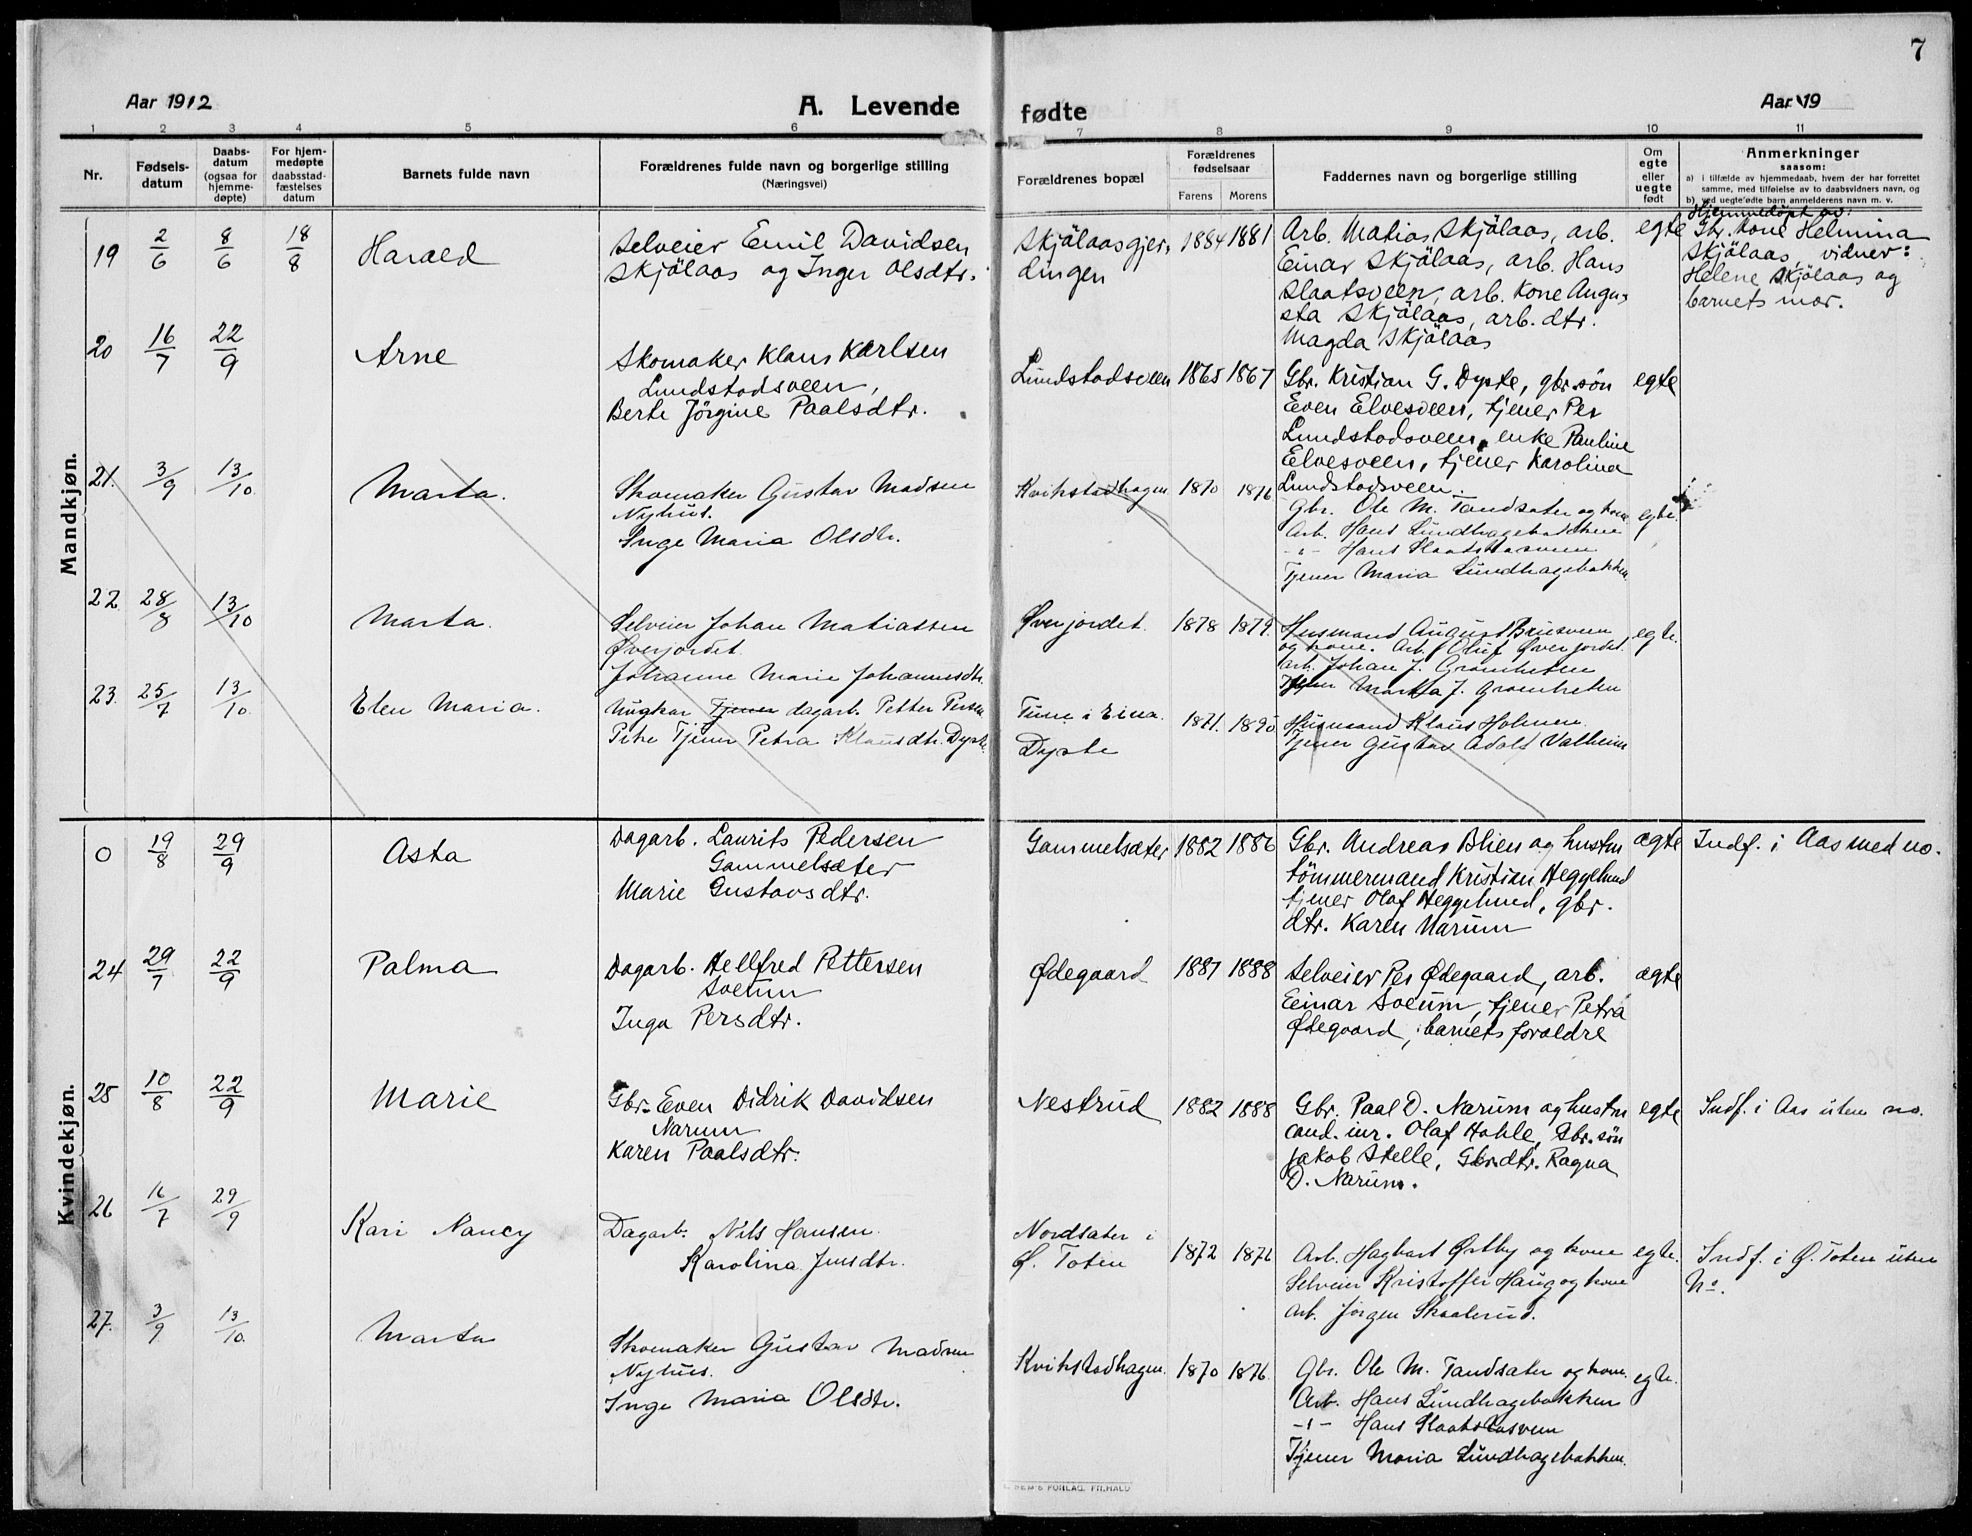 7
Aar 1912
A. Levende
fødte
Aar 19
1 2 3 4 5 6 7 8 9 10 11
Nr.
Fødsels-
datum
Daabs-
datum
(ogsaa for
hjemme-
døpte)
For hjem-
medøpte
daabsstad-
fæstelses
datum
Barnets fulde navn
Forældrenes fulde navn og borgerlige stilling
(Næringsvei)
Forældrenes bopæl
Forældrenes
fødselsaar
Farens Morens
Faddernes navn og borgerlige stilling
Om
egte
eller
uegte
født
Anmerkninger
saasom:
a) i tilfælde av hjemmedaab, hvem der har forrettet
samme, med tilføielse av to daabsvidners navn, og
b) ved uegte fødte barn anmelderens navn m. v.
Mandkjøn.
19 2/6 8/6 18/8 Harald
Selveier Emil Davidsen
Skjølaas og Inger Olsdtr.
Skjølaasgjer-
dingen
1884 1881
Arb. Matias Skjølaas, arb.
Einar Skjølaas, arb. Hans
Slaatsveen, arb. kone Augu-
sta Skjølaas, arb. dtr.
Magda Skjølaas
egte
Hjemmedöpt av:
Gbr. kone Helmina
Skjølaas, vidner:
Helene Skjølaas og
barnets mor.
20 16/7 22/9 Arne
Skomaker Klaus Karlsen
Lundstadsveen,
Berte Jörgine Paalsdtr.
Lundstadsveen 1865 1867
Gbr. Kristian G. Dyste, gbr. sön
Even Elvesveen, tjener Per
Lundstadsveen, enke Pauline
Elvesveen, tjener Karolina
Lundstadsveen
egte
21. 3/9 13/10 Marta.
Skomaker Gustav Madsen
Nyhus.
Inge Maria Olsdtr.
Kvikstadhagen 1870 1876
Gbr. Ole M. Tandsæter og kone
Arb. Hans Lundhagebakken
-"- Hans Slaatstasveen
Tjener Maria Lundhagebakken
egte.
22 28/8 13/10 Marta.
Selveier Johan Matiassen
Øverjordet.
Johanne Marie Johannesdtr.
Øverjordet. 1878 1879.
Husmand August Briesveen
og kone. Arb. Oluf Øverjordet.
arb. Johan J. Grønheten
Tjener Martha J. Grønheten
egte.
23. 25/7 13/10 Elen Maria.
Ungkar Tjener dagarb. Petter Persen
Pike Tjener Petra Klausdtr. Dyste.
Tune i Eina.
Dyste
1871. 1895
Husmand Klaus Holmen
Tjener Gustav Adolf Valheim
Kvindekjøn.
0 19/8 29/9 Asta
Dagarb. Laurits Pedersen
Gammelsæter
Marie Gustavsdtr.
Gammelsæter 1882 1886
Gbr. Andreas Blien og hustru
tömmermand Kristian Heggelund
tjener Olaf Heggelund, gbr.
dtr. Karen Narum
ægte
Indf. i Aas med no.
24 29/7 22/9 Palma
Dagarb. Hellfred Pettersen
Sveum
Inga Persdtr.
Ødegaard 1887 1888
Selveier Per Ødegaard, arb.
Einar Sveum, tjener Petra
Ødegaard, barnets foraldre
ægte
25 10/8 22/9 Marie
Gbr. Even Didrik Davidsen
Narum
Karen Paalsdtr.
Nestrud 1882 1888
Gbr. Paal D. Narum og hustru
cand. jur. Olaf Hohle, Gbr. sön
Jakob Stelle, Gbr. dtr. Ragna
D. Narum.
egte
Indf. i Aas uten no.
26 16/7 29/9 Kari Nancy
Dagarb. Nils Hansen.
Karolina Jensdtr.
Nordsæter i
Ø. Toten
1872 1872
Arb. Hagbart Ørtby og kone
Selveier Kristoffer Haug og kone
Arb. Jørgen Skaalerud.
egte.
Indf. i Ø. Toten uten
No.
27. 3/9 13/10 Marta
Skomaker Gustav Madsen
Nyhus.
Inge Maria Olsdtr.
Kvikstadhagen. 1870 1876.
Gbr. Ole M. Tandsæter og kone.
Arb. Hans Lundhagebakken
-"- Hans Slaatstasveen
Tjener Maria Lundhagebakken.
egte.
FORLAG,